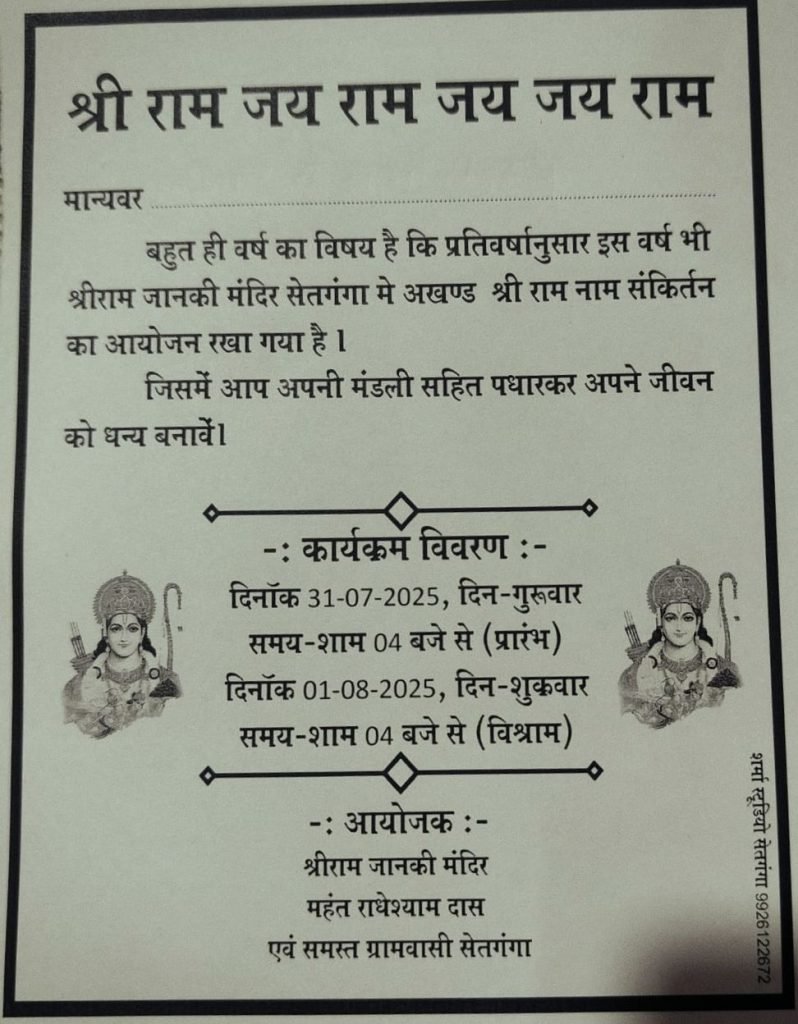 श्री राम जय राम जय जय राम
मान्यवर ........................................................................
बहुत ही वर्ष का विषय है कि प्रतिवर्षानुसार इस वर्ष भी
श्रीराम जानकी मंदिर सेतगंगा मे अखण्ड श्री राम नाम संकिर्तन
का आयोजन रखा गया है ।
जिसमें आप अपनी मंडली सहित पधारकर अपने जीवन
को धन्य बनावें।
-: कार्यक्रम विवरण :-
दिनॉक 31-07-2025, दिन-गुरूवार
समय-शाम 04 बजे से (प्रारंभ)
दिनॉक 01-08-2025, दिन-शुक्रवार
समय-शाम 04 बजे से (विश्राम)
-: आयोजक :-
श्रीराम जानकी मंदिर
महंत राधेश्याम दास
एवं समस्त ग्रामवासी सेतगंगा
शर्मा स्टूडियो सेतगंगा 9926122672